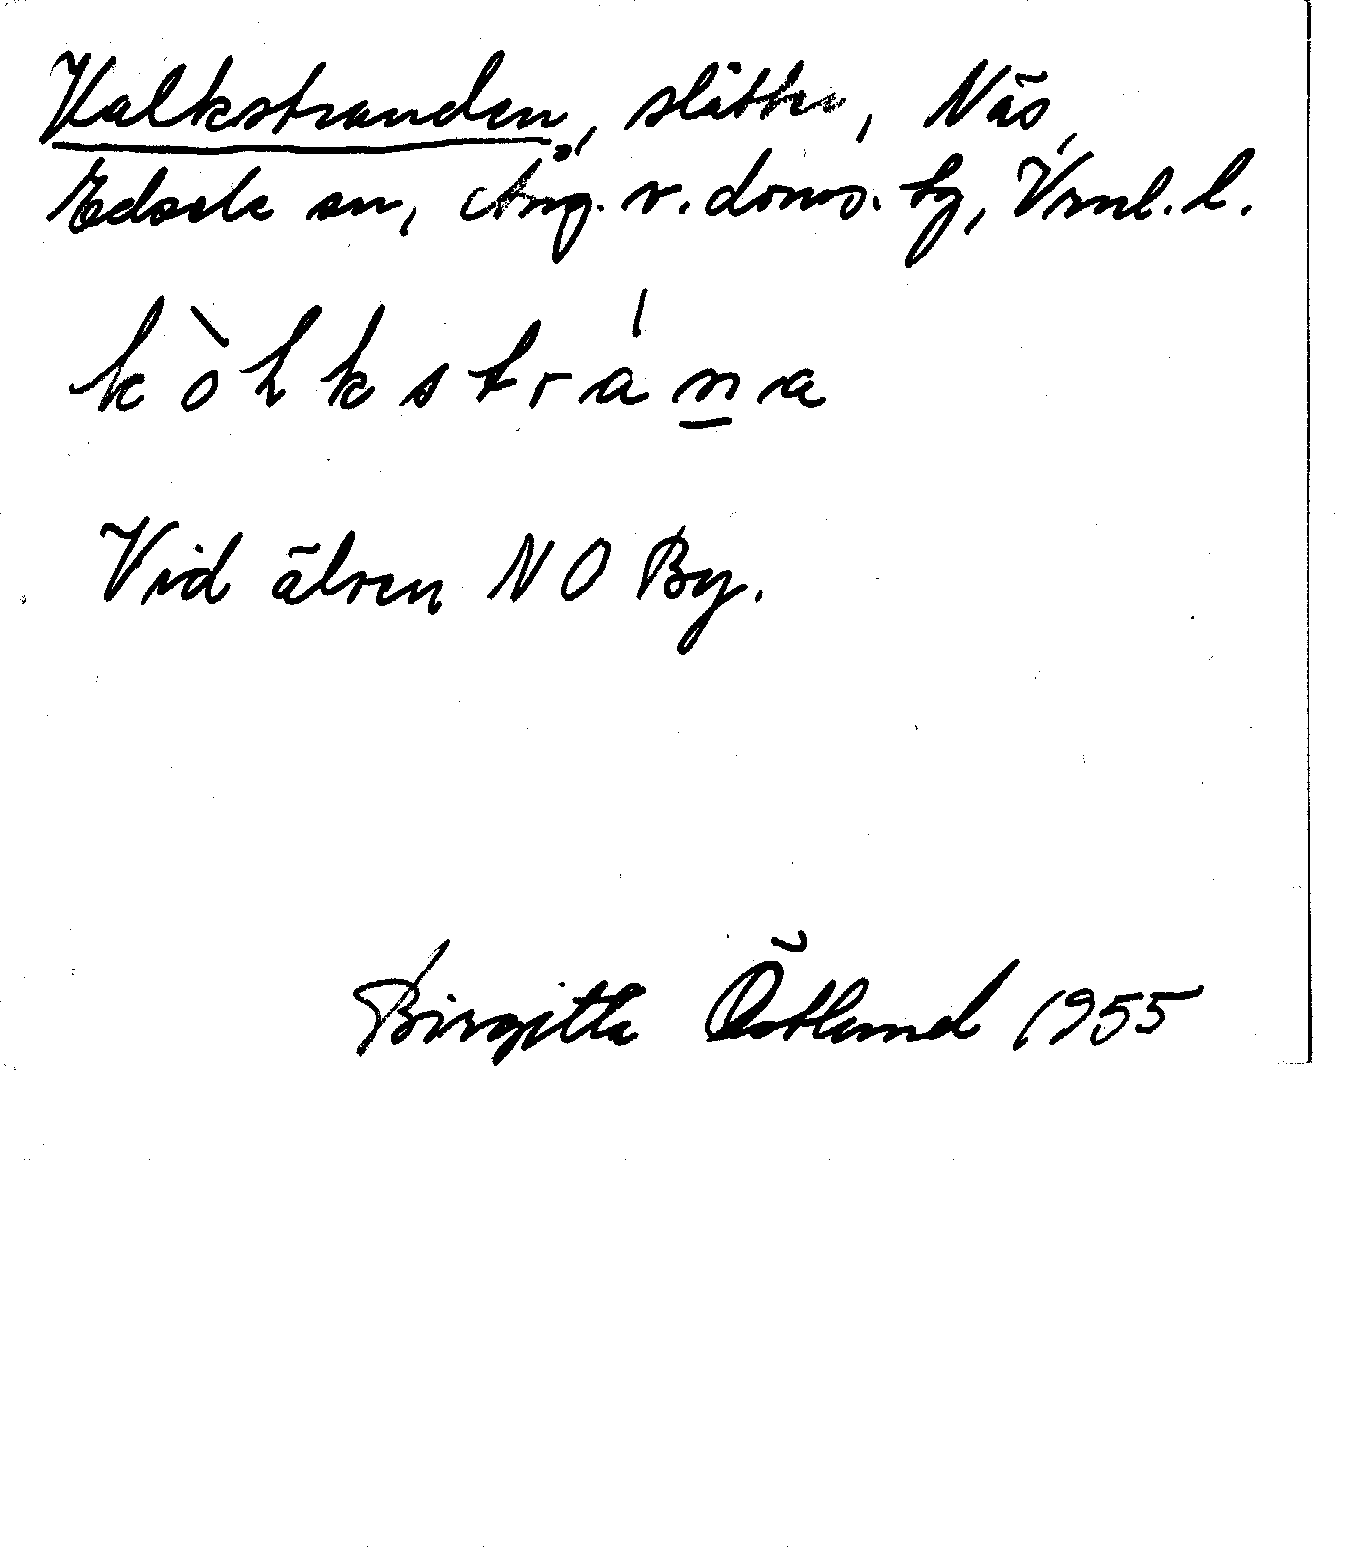 Kalkstranden, slåtter, Näs,
Edsele sn, Ång. v. doms. tg, Vrnl. l.
kòhkstrána
Vid älven NO By.
Birgitta Östlund 1955